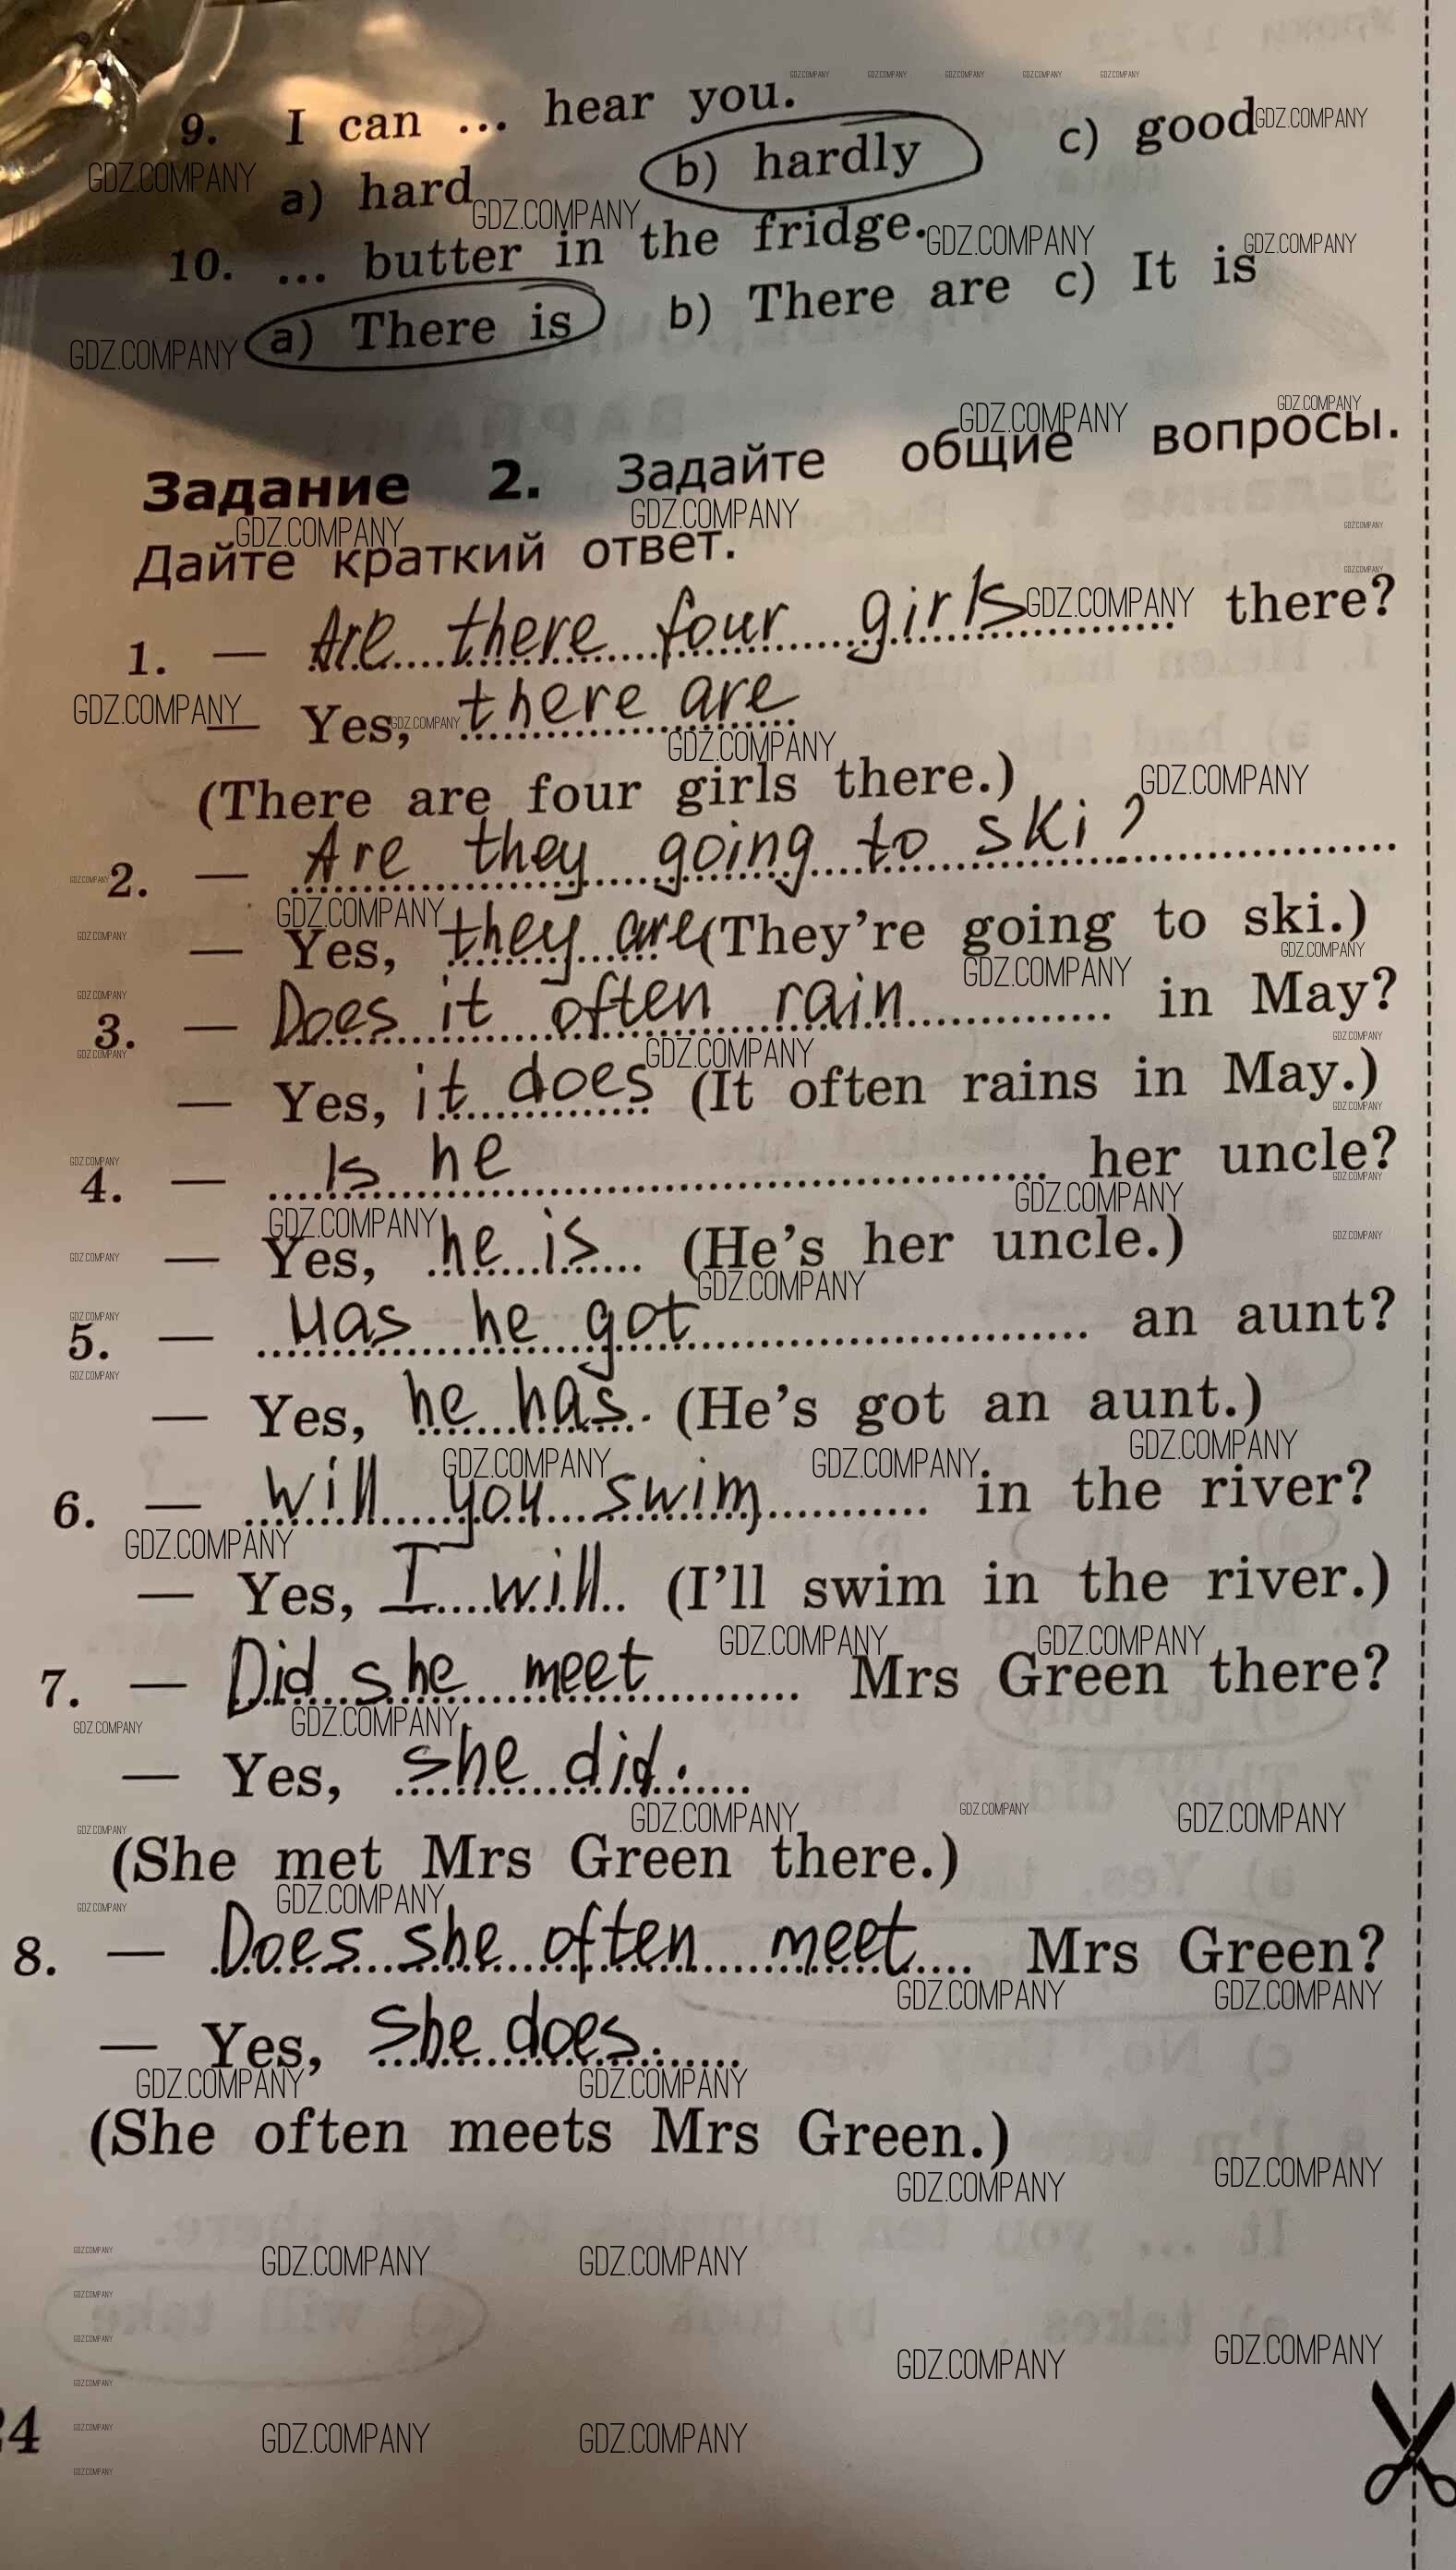 9. I can ... hear you.
a) hard b) hardly c) good
10. ... butter in the fridge.
a) There is b) There are c) It is
Задание 2. Задайте общие вопросы.
Дайте краткий ответ.
1. — Are there four girls there?
— Yes, there are
(There are four girls there.)
2. — Are they going to ski?
— Yes, they are (They're going to ski.)
3. — Does it often rain in May?
— Yes, it does (It often rains in May.)
4. — Is he her uncle?
— Yes, he is (He's her uncle.)
5. — Has he got an aunt?
— Yes, he has. (He's got an aunt.)
6. — Will you swim in the river?
— Yes, I will. (I'll swim in the river.)
7. — Did she meet Mrs Green there?
— Yes, she did.
(She met Mrs Green there.)
8. — Does she often meet Mrs Green?
— Yes, she does.
(She often meets Mrs Green.)
24
GDZ.COMPANY